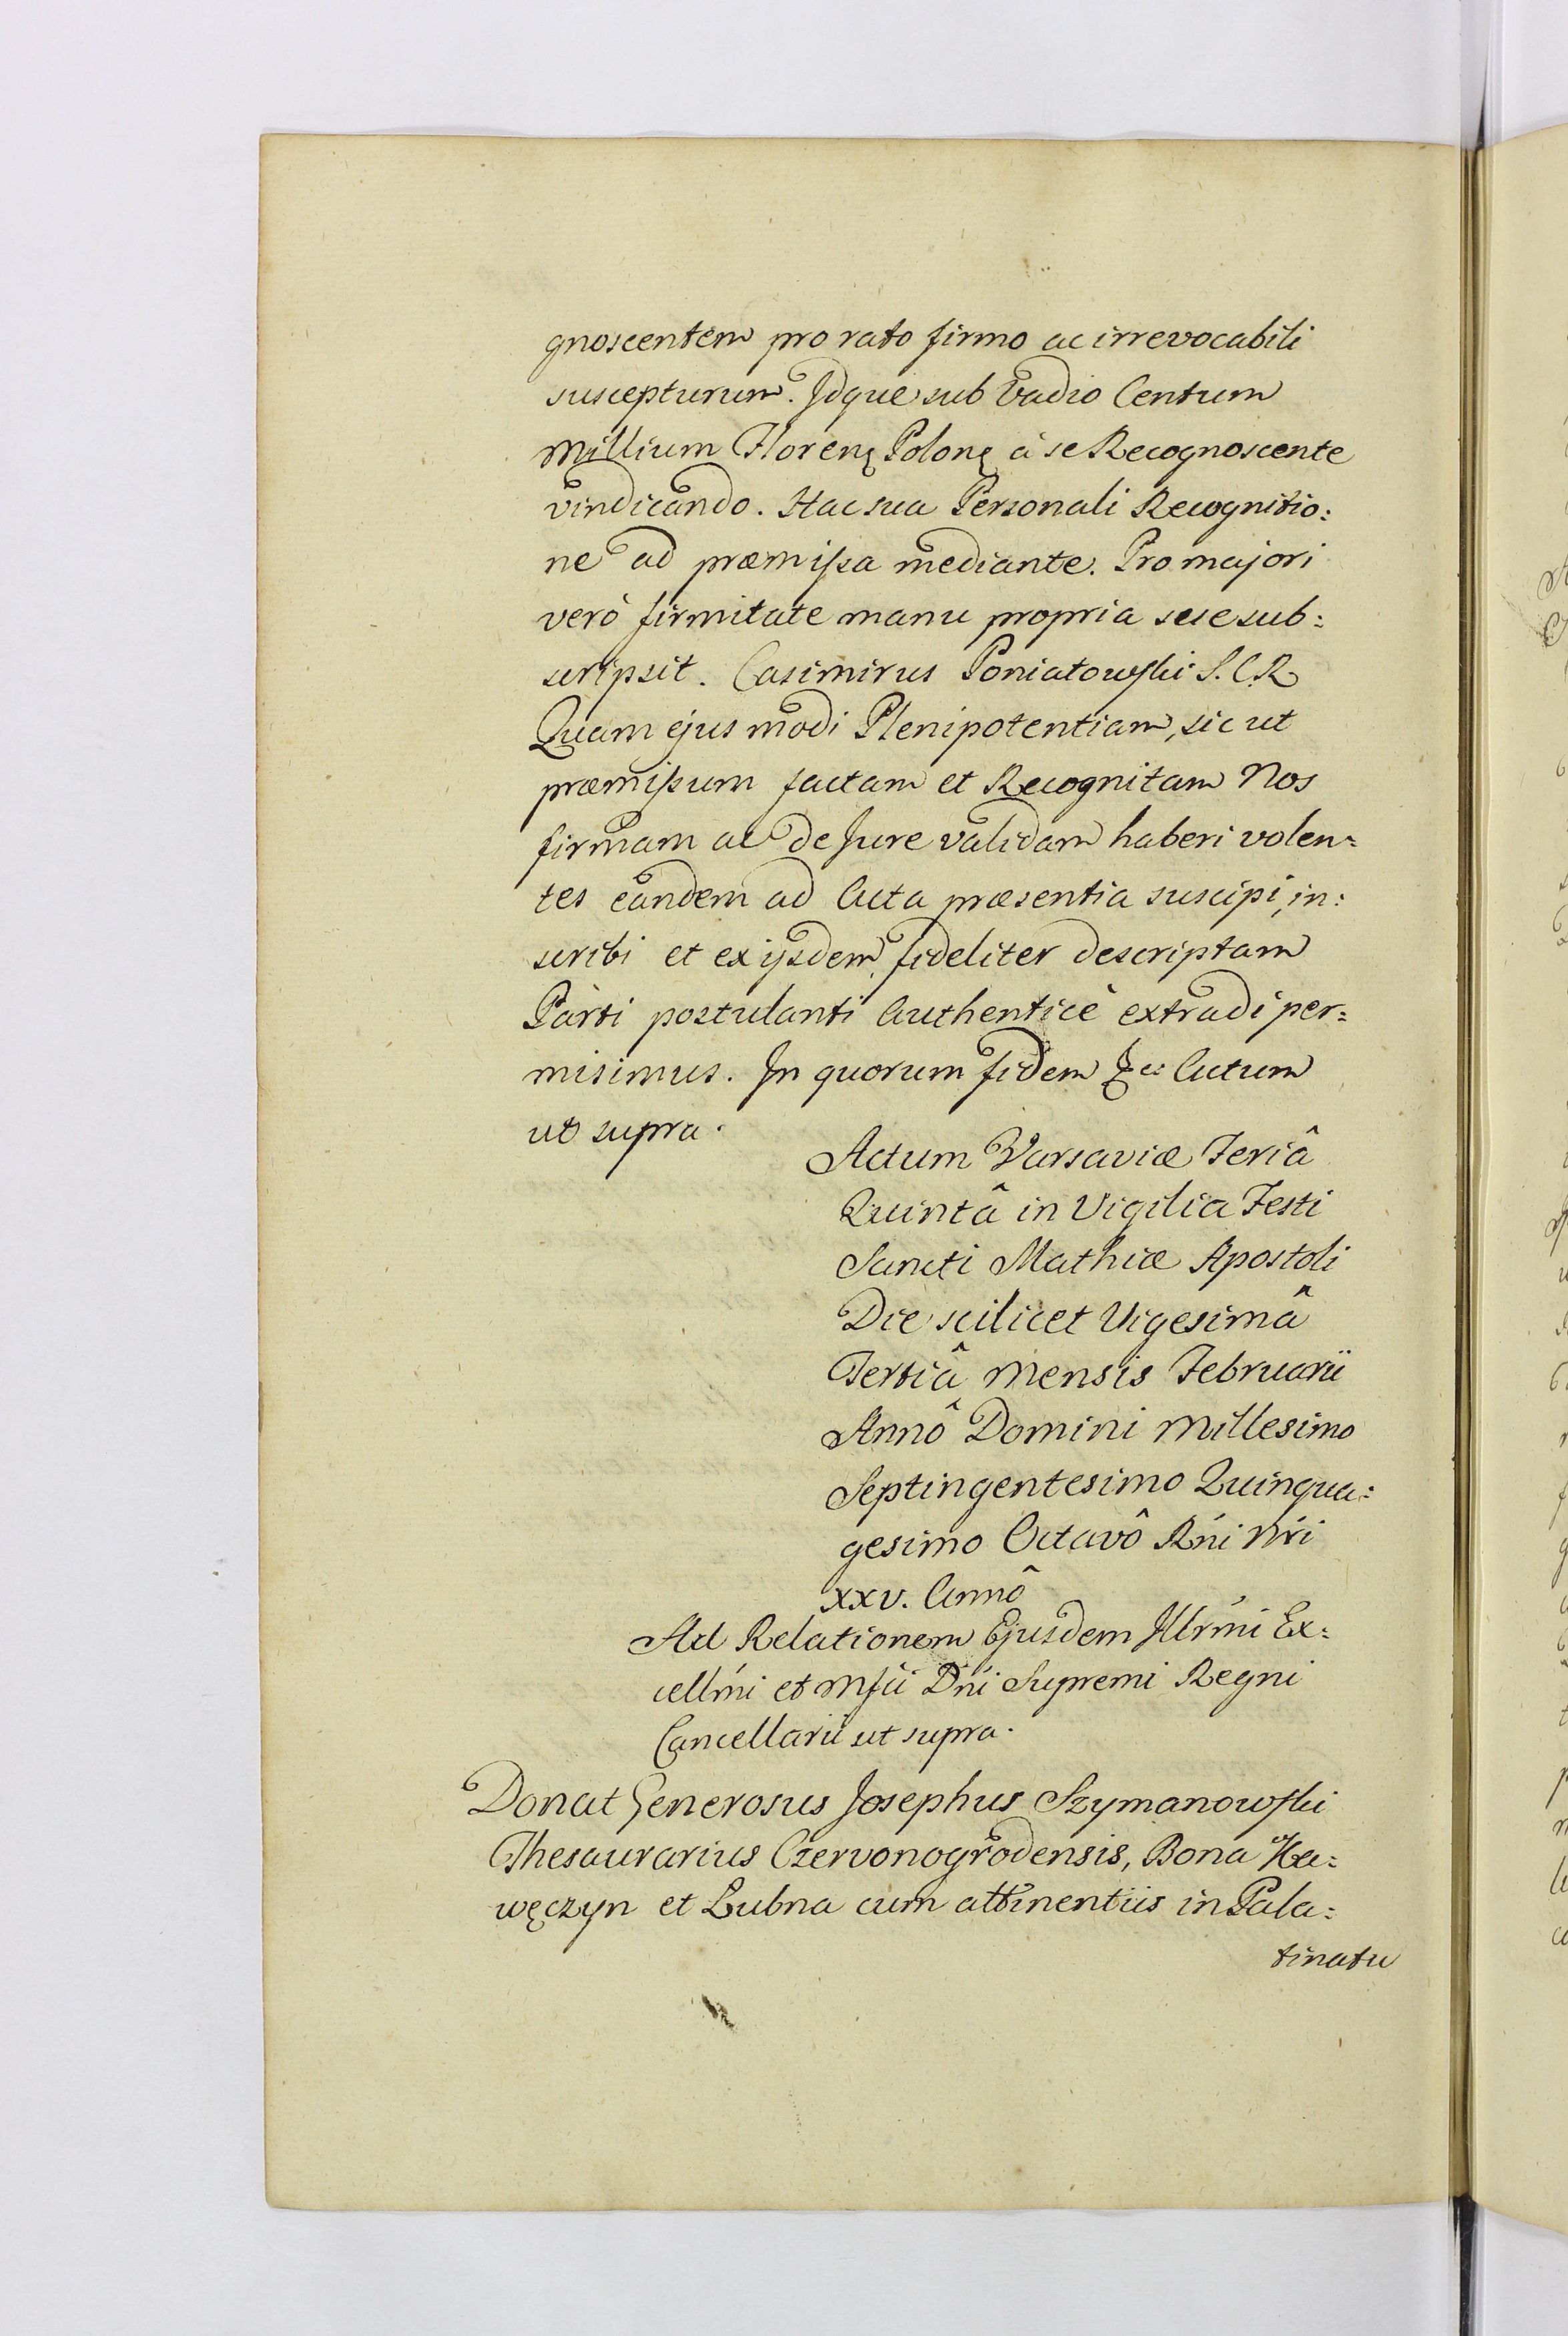 gnoscentem pro rato firmo ac irrevocabili
suscepturum. Idque sub Vadio Centum
Millium Floren: Polon: à se Recognoscente
vindicando. Hac sua Personali Recognitio:
ne ad præmissa mediante. Pro majori
verò firmitate manu propria sese sub:
scripsit. Casimirus Poniatowski S.C.R
Quam ejusmodi Plenipotentiam, sic ut
præmissum factam et Recognitam Nos
firmam ac de Jure validam haberi volen:
tes eandem ad Acta præsentia suscipi, in:
scribi et ex ijsdem fideliter descriptam
Parti postulanti Authenticè extradi per:
misimus. In quorum fidem &c: Actum
ut supra.
Actum Varsaviæ Feriâ
Quintâ in Vigilia Festi
Sancti Mathiæ Apostoli
Die scilicet Vigesimâ
Tertiâ Mensis Februarii
Annô Domini Millesimo
Septingentesimo Quinqua:
gesimo Octavô Rńi Nŕi
XXV. Annô
Ad Relationem Ejusdem Illrḿi Ex:
cellḿi et Mfci Dńi Supremi Regni
Cancellarii ut supra.
Donat Generosus Josephus Szymanowski
Thesaurarius Czervonogrodensis, Bona Ka:
węczyn et Lubna cum attinentiis in Pala:
tinatu